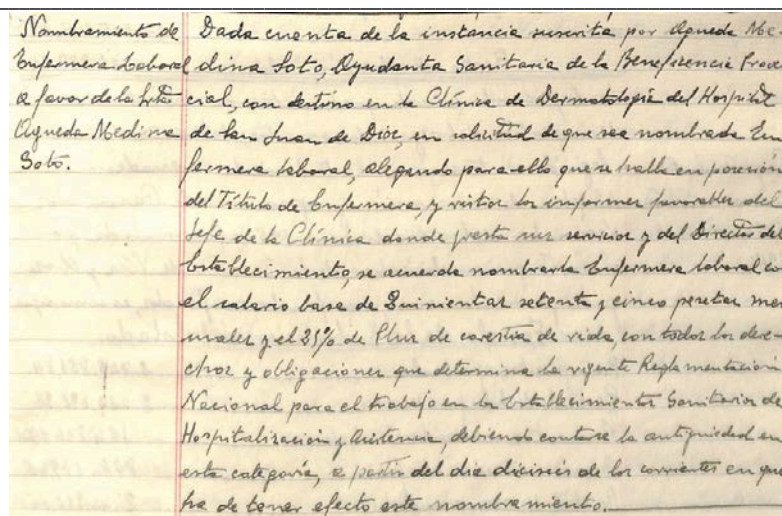 Nombramiento de
Enfermera Laboral
a favor de la Srta
Agueda Medina
Soto.
Dada cuenta de la instancia suscrita por Agueda Me-
dina Soto, Ayudanta Sanitaria de la Beneficencia Provin
cial, con destino en la Clínica de Dermatología del Hospital
de San Juan de Dios, en solicitud de que sea nombrada En
fermera laboral, alegando para ello que se halla en posesión
del Título de Enfermera, y vistos los informes favorables del
Jefe de la Clínica donde presta sus servicios y del Director del
Establecimiento, se acuerda nombrarla Enfermera laboral co
el salario base de Quinientas setenta y cinco pesetas men
suales y el 25% de Plus de carestía de vida, con todos los dere-
chos y obligaciones que determina la vigente Reglamentación
Nacional para el trabajo en los Establecimientos Sanitarios de
Hospitalización y Asistencia, debiendo contarse la antigüedad en
esta categoría, a partir del día dieciseis de los corrientes en que
ha de tener efecto este nombramiento.